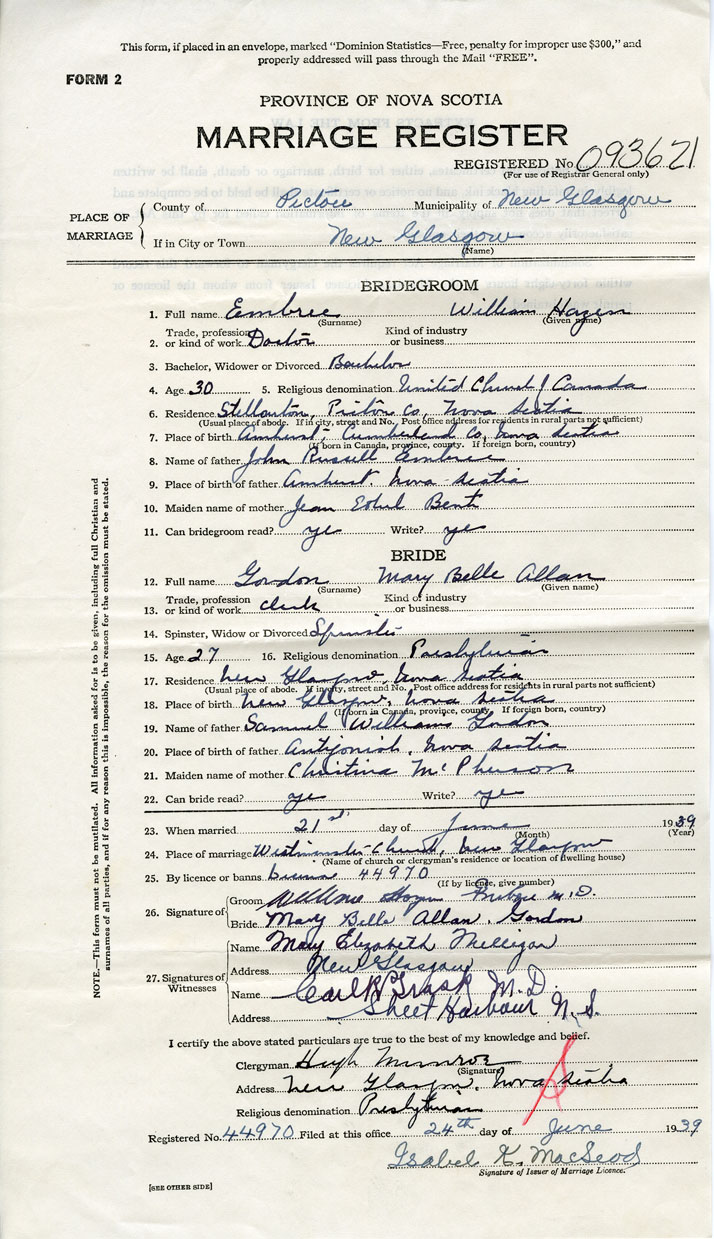 This form, if placed in an envelope, marked "Dominion Statistics—Free, penalty for improper use $300," and
properly addressed will pass through the Mail "FREE".
FORM 2
PROVINCE OF NOVA SCOTIA
MARRIAGE REGISTER
REGISTERED No. 093621
(For use of Registrar General only)
PLACE OF MARRIAGE
County of Pictou Municipality of New Glasgow
If in City or Town New Glasgow
(Name)
BRIDEGROOM
1. Full name Embree William Hazen
(Surname) (Given name)
2. Trade, profession or kind of work Doctor Kind of industry or business
3. Bachelor, Widower or Divorced Bachelor
4. Age 30 5. Religious denomination United Church of Canada
6. Residence Stellarton, Pictou Co, Nova Scotia
(Usual place of abode. If in city, street and No. Post office address for residents in rural parts not sufficient)
7. Place of birth Amherst, Cumberland Co, Nova Scotia
(If born in Canada, province, county. If foreign born, country)
8. Name of father John Russell Embree
9. Place of birth of father Amherst Nova Scotia
10. Maiden name of mother Jean Ethel Bent
11. Can bridegroom read? yes Write? yes
BRIDE
12. Full name Gordon Mary Belle Allan
(Surname) (Given name)
13. Trade, profession or kind of work clerk Kind of industry or business
14. Spinster, Widow or Divorced Spinster
15. Age 27 16. Religious denomination Presbyterian
17. Residence New Glasgow, Nova Scotia
(Usual place of abode. If in city, street and No. Post office address for residents in rural parts not sufficient)
18. Place of birth New Glasgow, Nova Scotia
(If born in Canada, province, county. If foreign born, country)
19. Name of father Samuel Williams Gordon
20. Place of birth of father Antigonish, Nova Scotia
21. Maiden name of mother Christina McPherson
22. Can bride read? yes Write? yes
23. When married 21st day of June 1939
(Month) (Year)
24. Place of marriage Westminster Church, New Glasgow
(Name of church or clergyman's residence or location of dwelling house)
25. By licence or banns license 44970
(If by licence, give number)
26. Signature of
Groom William Hazen Embree M.D.
Bride Mary Belle Allan Gordon
27. Signatures of Witnesses
Name Mary Elizabeth Milligan
Address New Glasgow
Name Carl R Trask M.D.
Address Sheet Harbour N.S.
I certify the above stated particulars are true to the best of my knowledge and belief.
Clergyman Hugh Munroe
(Signature)
Address New Glasgow, Nova Scotia
Religious denomination Presbyterian
Registered No. 44970 Filed at this office 24th day of June 1939
Isabel K. MacLeod
Signature of Issuer of Marriage Licence.
[SEE OTHER SIDE]
NOTE.—This form must not be mutilated. All information asked for is to be given, including full Christian and
surnames of all parties, and if for any reason this is impossible, the reason for the omission must be stated.